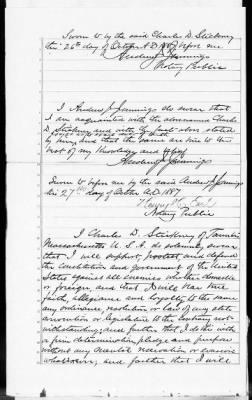 Sworn to by the said Charles D. Stickney
this 26th day of October A.D. 1887 before me
Andrew J. Jennings
Notary Public
I Andrew J. Jennings do swear that
I am acquainted with the abovenamed Charles
D. Stickney and with the facts above stated
by him and that the same are true to the
best of my Knowledge and belief
Andrew J. Jennings
Sworn to before me by the said Andrew J. Jennings
this 27th day of October A.D. 1887
Notary Public
I Charles D. Stickney of Taunton
Massachusetts U.S.A. do solemnly swear
that I will support, protect and defend
the Constitution and government of the United
States against all enemies, whether domestic
or foreign, and that I will bear true
faith, allegiance and loyalty to the same
any ordinance, resolution or law of any state
convention or legislature to the contrary not-
withstanding; and further that I do this with
a firm determination, pledge and purpose
without any mental reservation or evasion
whatsoever, and further that I will